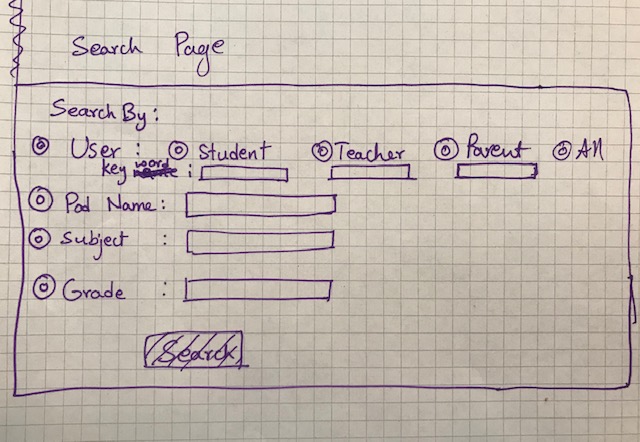 Search Page
Search By:
User : Student Teacher Parent All
key word :
Pod Name:
Subject :
Grade :
Search